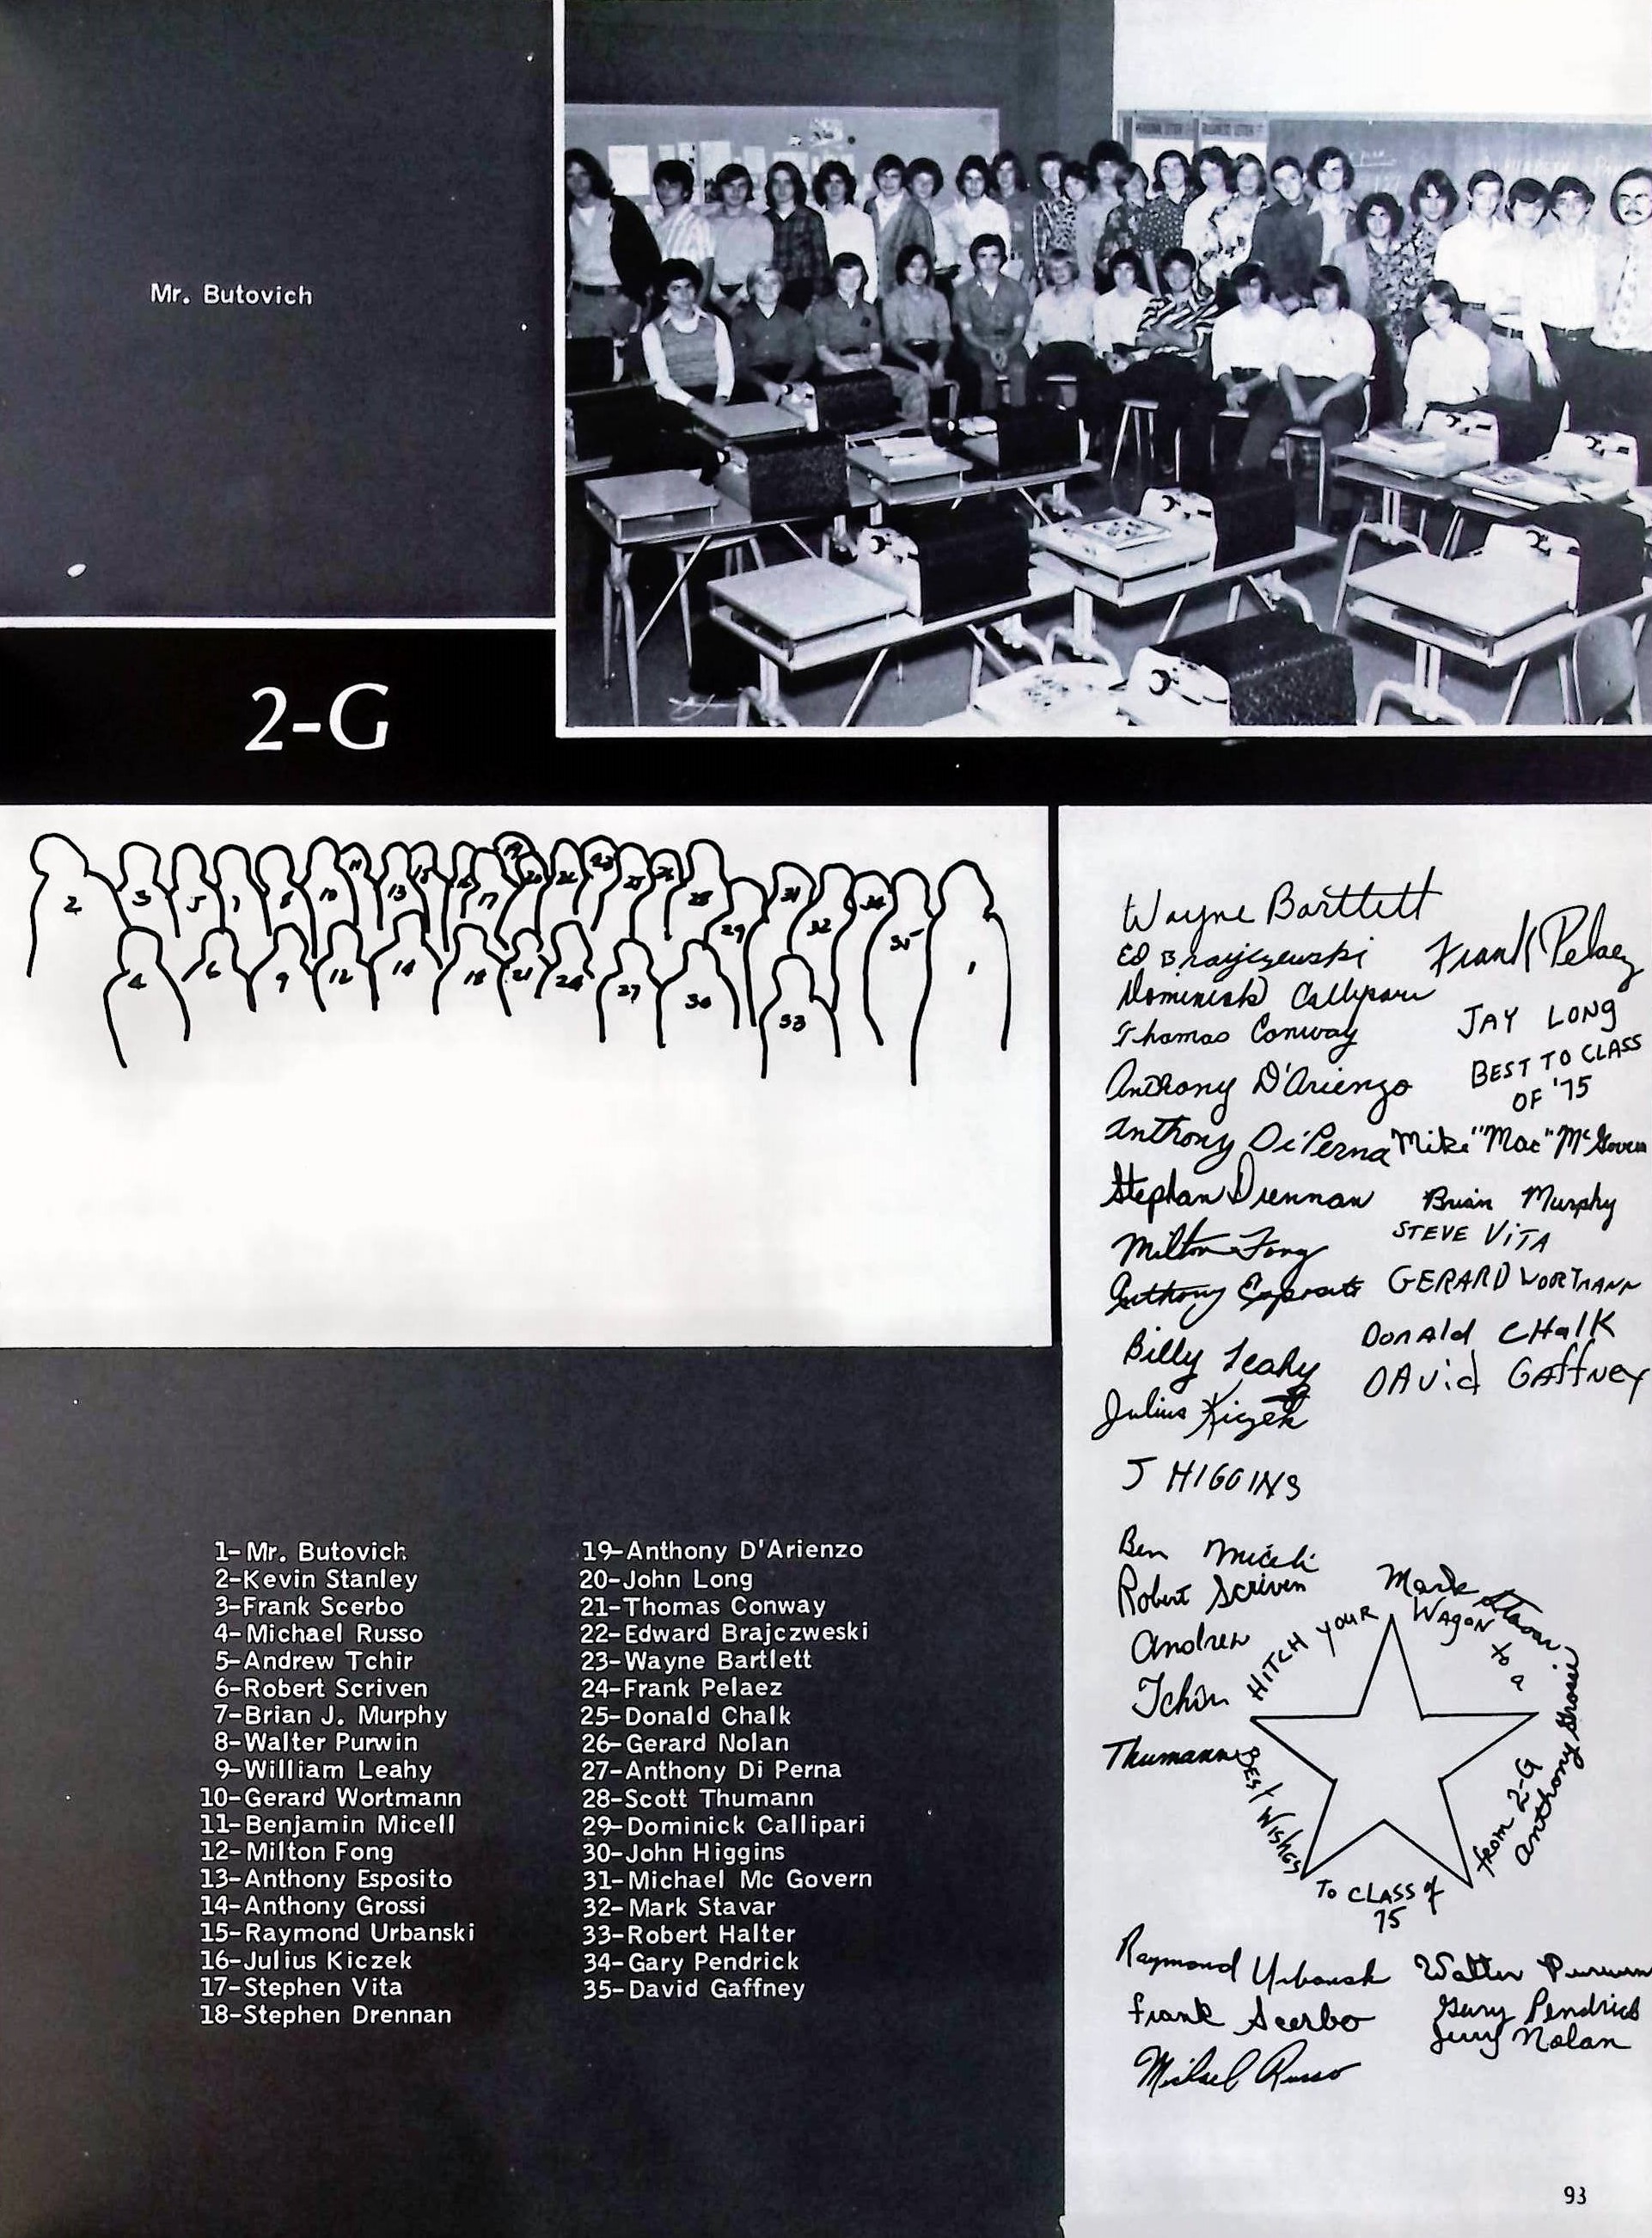 Mr. Butovich
2-G
2
3
5
7
8
10
11
13
15
16
17
19
20
22
23
25
26
28
29
31
32
34
35
1
4
6
9
12
14
18
21
24
27
30
33
1-Mr. Butovich
2-Kevin Stanley
3-Frank Scerbo
4-Michael Russo
5-Andrew Tchir
6-Robert Scriven
7-Brian J. Murphy
8-Walter Purwin
9-William Leahy
10-Gerard Wortmann
11-Benjamin Micell
12-Milton Fong
13-Anthony Esposito
14-Anthony Grossi
15-Raymond Urbanski
16-Julius Kiczek
17-Stephen Vita
18-Stephen Drennan
19-Anthony D'Arienzo
20-John Long
21-Thomas Conway
22-Edward Brajczweski
23-Wayne Bartlett
24-Frank Pelaez
25-Donald Chalk
26-Gerard Nolan
27-Anthony Di Perna
28-Scott Thumann
29-Dominick Callipari
30-John Higgins
31-Michael Mc Govern
32-Mark Stavar
33-Robert Halter
34-Gary Pendrick
35-David Gaffney
Wayne Bartlett
Ed Brajczewski
Dominick Callipari
Thomas Conway
Anthony D'Arienzo
Anthony Di Perna
Stephan Drennan
Milton Fong
Anthony Esposito
Billy Leahy
Julius Kiczek
J HIGGINS
Ben Miceli
Robert Scriven
Andrew
Tchir
Thumann
Frank Pelaez
JAY LONG
BEST TO CLASS
OF '75
Mike "Mac" McGovern
Brian Murphy
STEVE ViTA
GERARD WORTMANN
DonAld CHalK
DAvid GAffNEY
Mark Stavar
HITCH YOUR WAGON to a
Anthony Grossi
from 2-G
BEST WISHES
To CLASS of
75
Raymond Urbansk
Frank Scerbo
Michael Russo
Walter Purwin
Gary Pendrick
Jerry Nolan
93